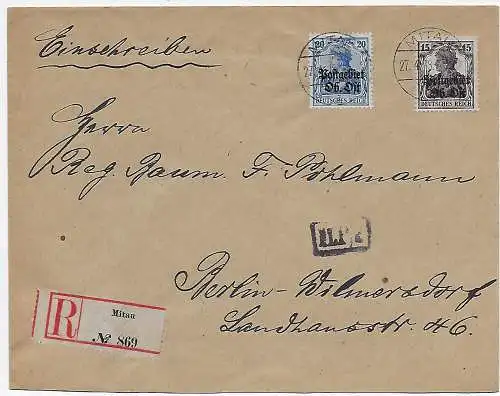 Einschreiben
20 20
Postgebiet
Ob. Ost
DEUTSCHES REICH
MITAU
27.
15 15
Postgebiet
Ob. Ost
DEUTSCHES REICH
MITAU
27.
Herrn
Reg. Baum. F. Pohlmann
Berlin-Wilmersdorf
Landhausstr. 46.
R
Mitau
№ 869